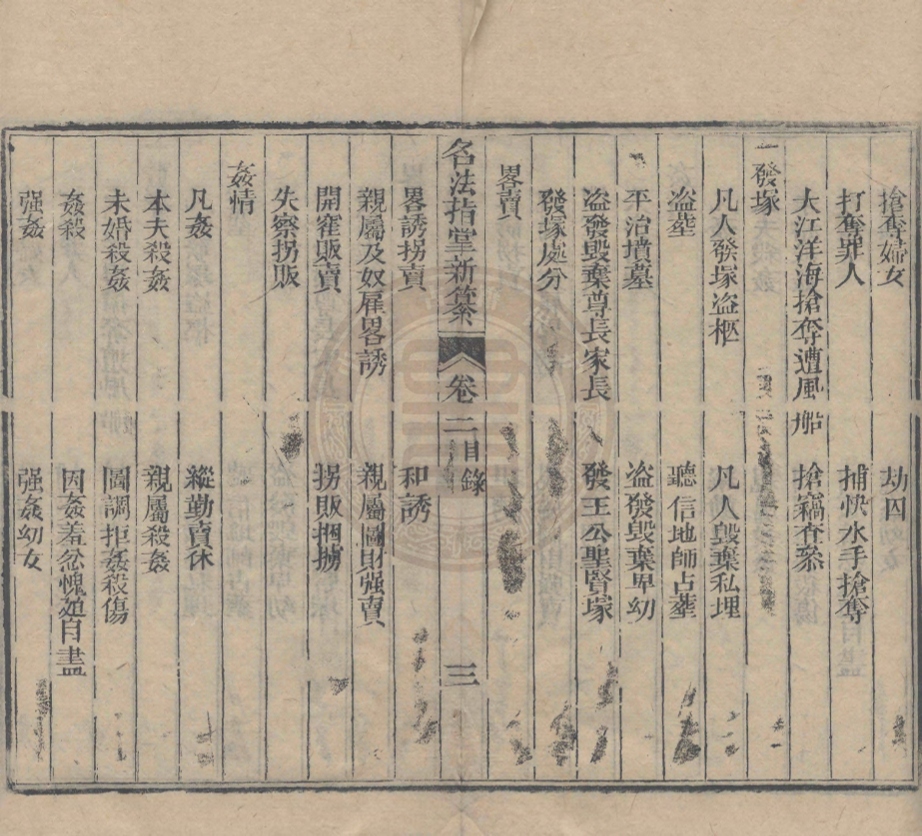 搶奪婦女　劫囚
打奪罪人　捕快水手搶奪
大江洋海搶奪遭風船　搶竊查叅
發塚
凡人發塚盗柩　凡人毀棄私埋
盗塟　聽信地師占塟
平治墳墓　盗發毀棄卑幼
盗發毀棄尊長家長　發王公聖賢塚
發塚処分
畧賣
名法指掌新纂　卷二目錄　三
畧誘拐賣　和誘
親屬及奴雇畧誘　親屬圖財强賣
開窰販賣　拐販捆擄
失察拐販
姦情
凡姦　縱勒賣休
本夫殺姦　親屬殺姦
未婚殺姦　圖調拒姦殺傷
姦殺　因姦羞忿愧廹自盡
强姦　强姦幼女